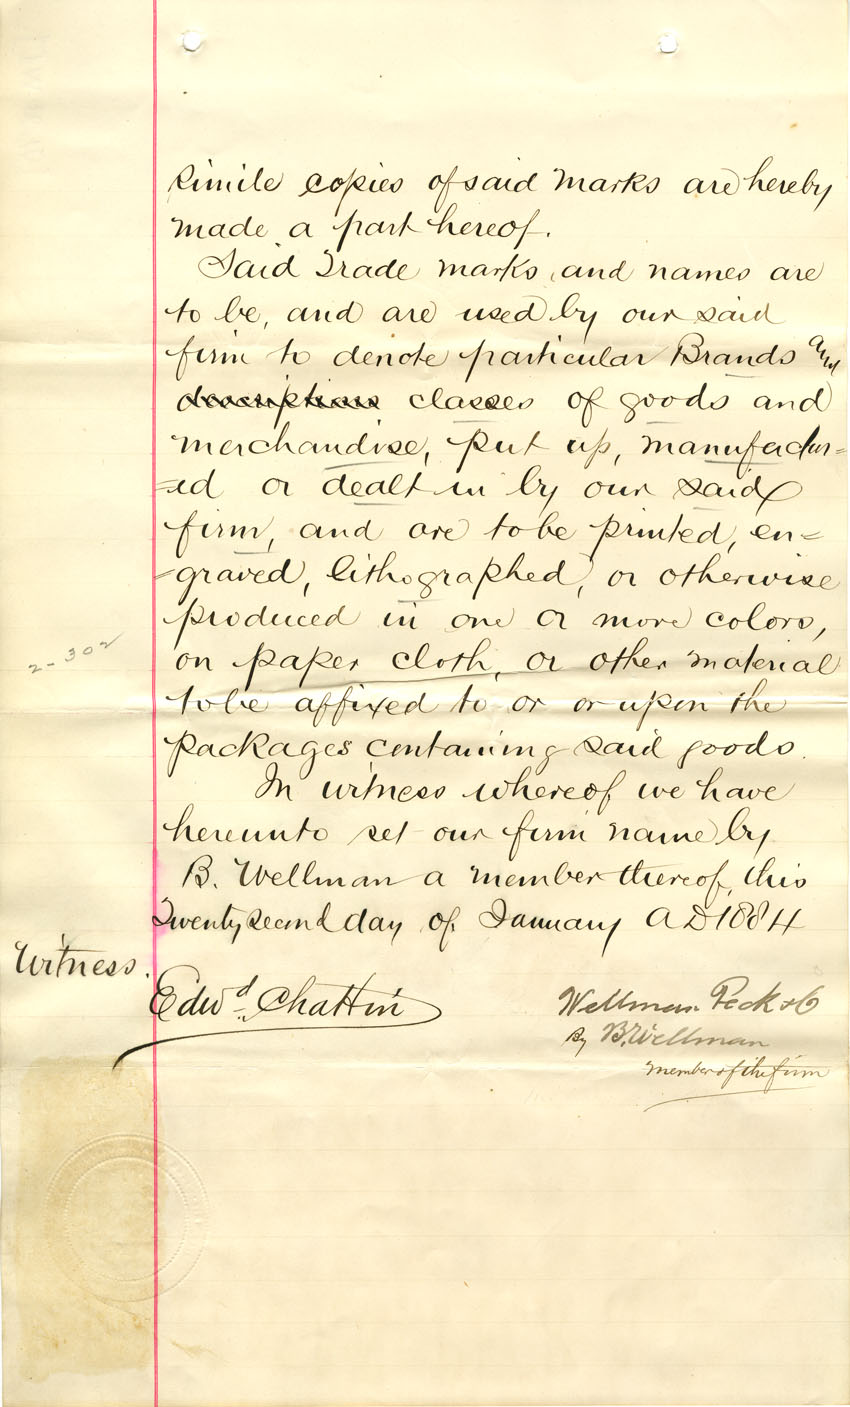 simile copies of said marks are hereby
made a part hereof.
Said Trade marks and names are
to be, and are used by our said
firm to denote particular Brands and
descriptions classes of goods and
merchandise, put up, manufactur=
=ed or dealt in by our said
firm, and are to be printed, en=
=graved, lithographed, or otherwise
produced in one or more colors,
on paper cloth, or other material
to be affixed to or or upon the
packages containing said goods.
In witness whereof we have
hereunto set our firm name by
B. Wellman a member thereof, this
Twenty second day of January A D 1884
Witness.
Edwd. Chattin
Wellman. Peck & Co
By B. Wellman
member of the firm
2-302